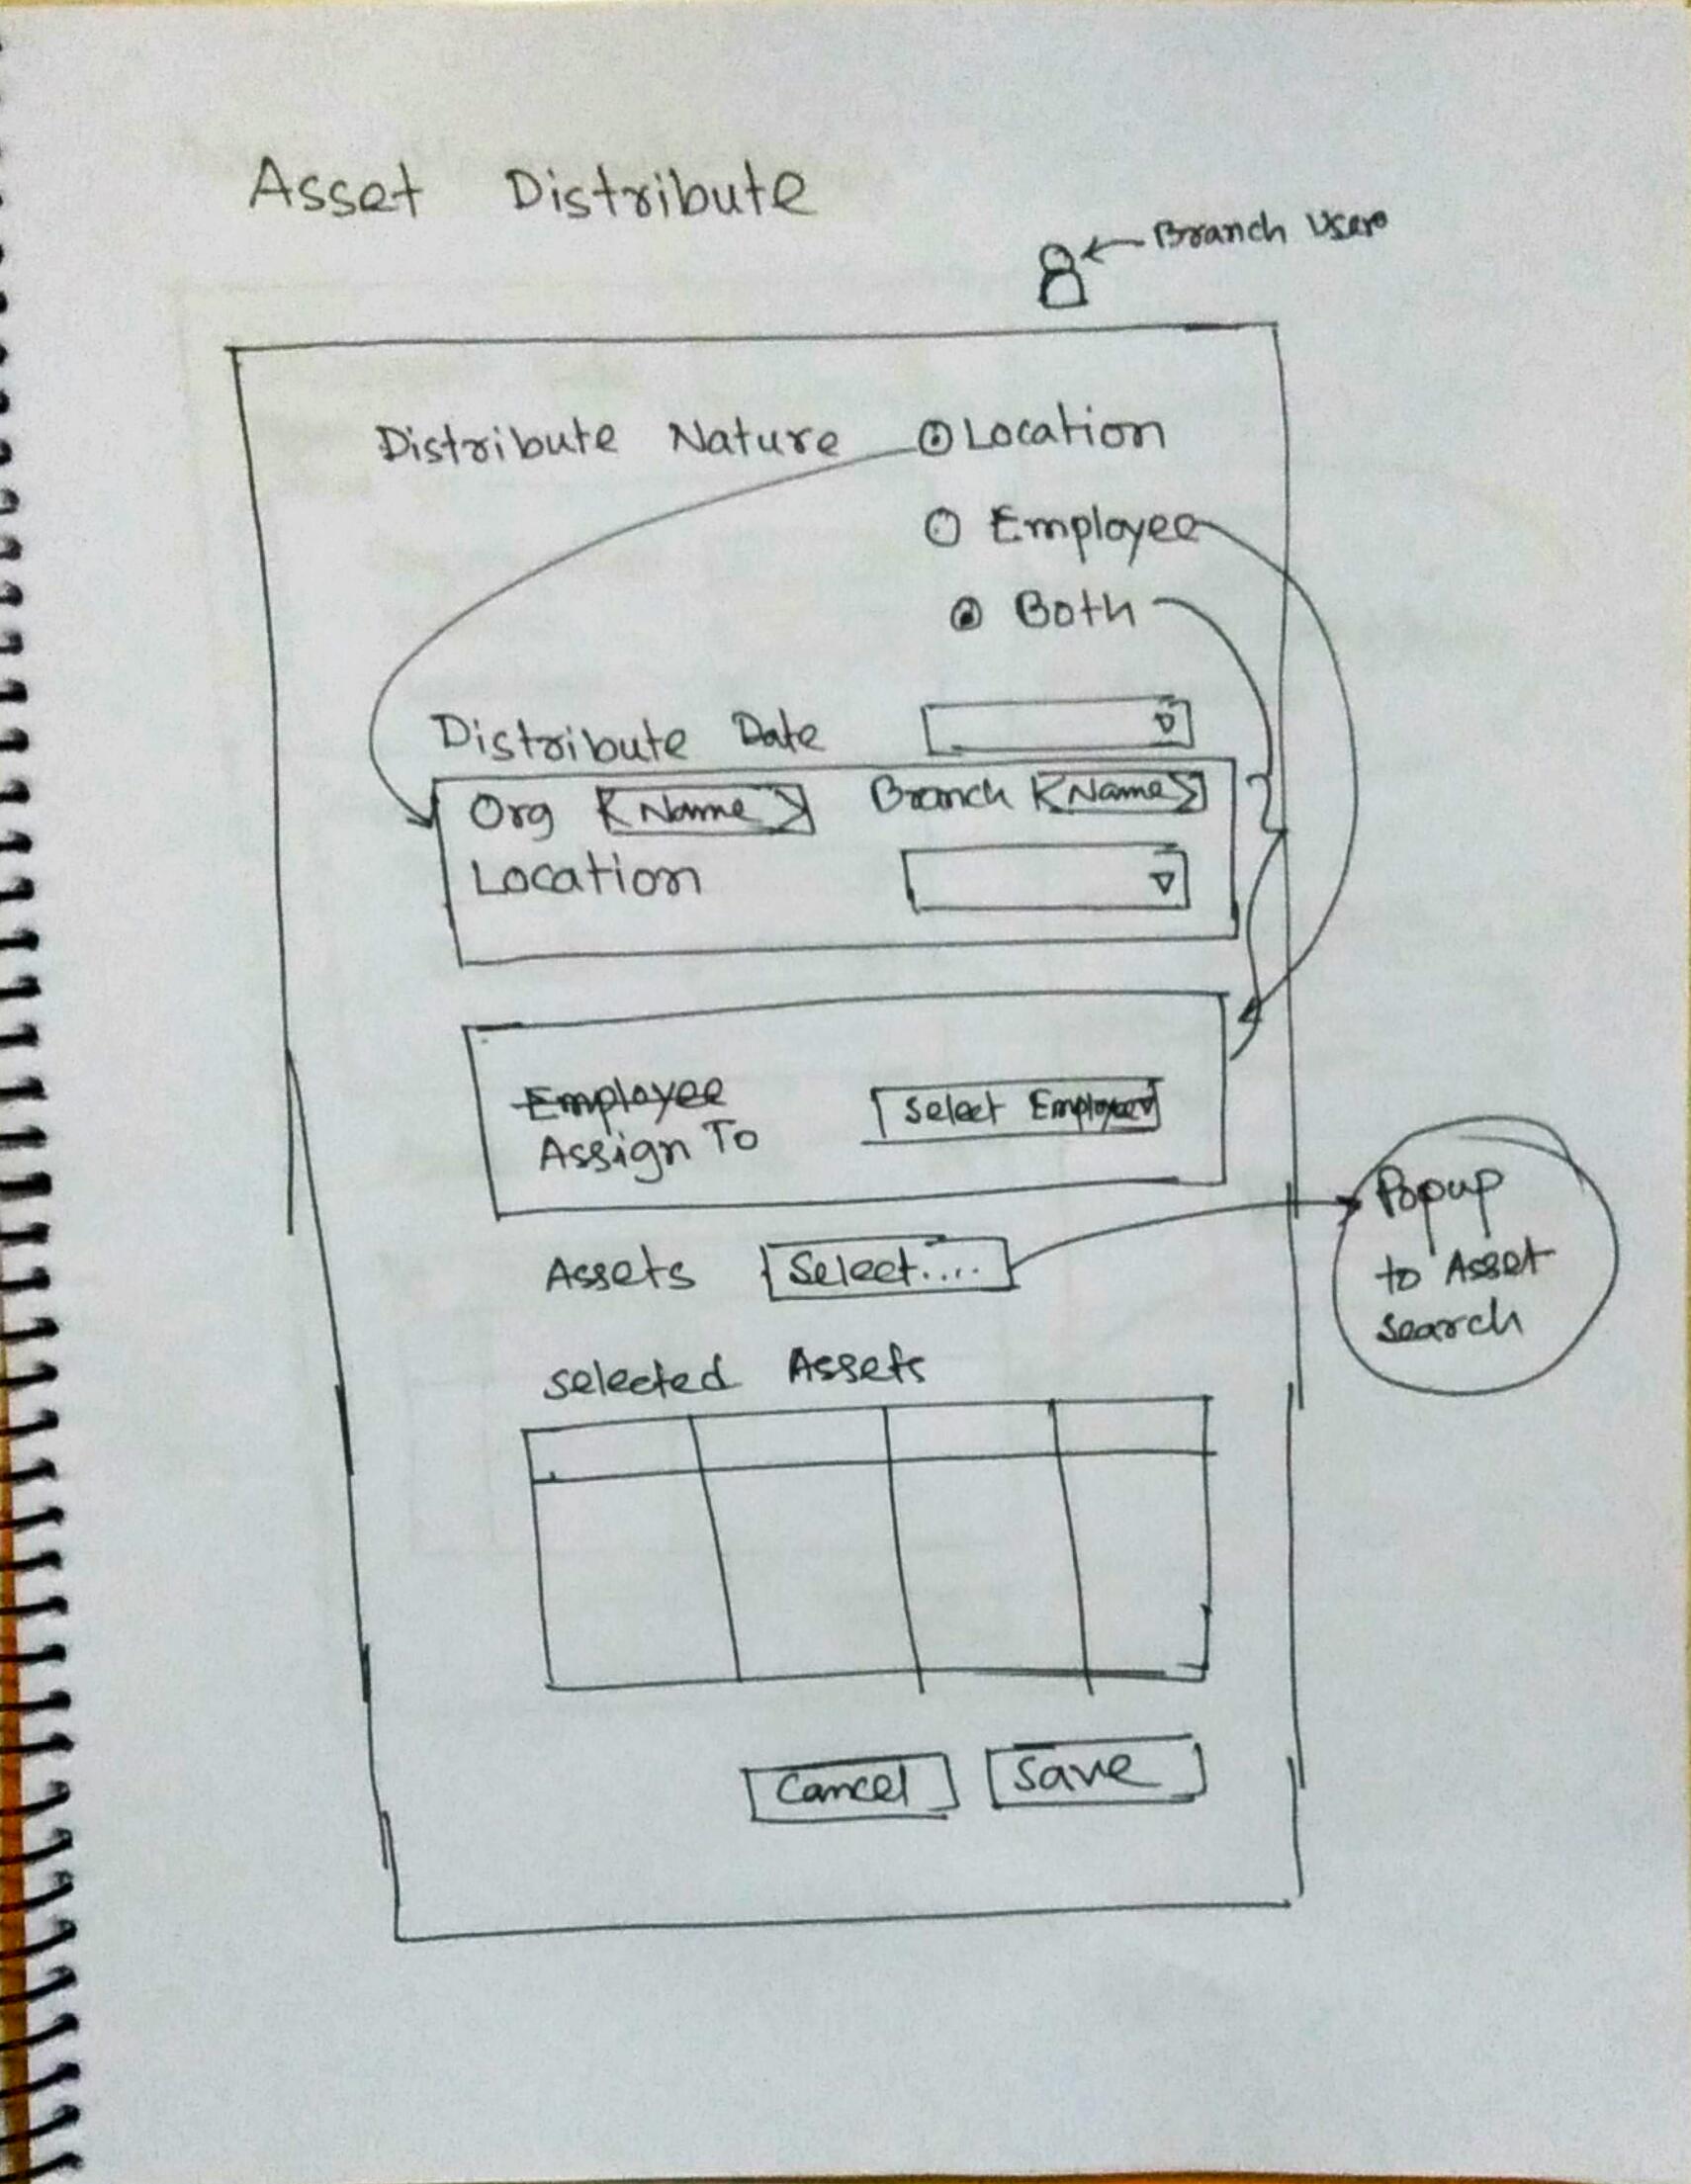 Asset Distribute
Branch User
Distribute Nature Location
Employee
Both
Distribute Date
Org <Name> Branch <Name>
Location
Employee
Assign To Select Employee
Assets Select....
Popup
to Asset
search
selected Assets
Cancel Save